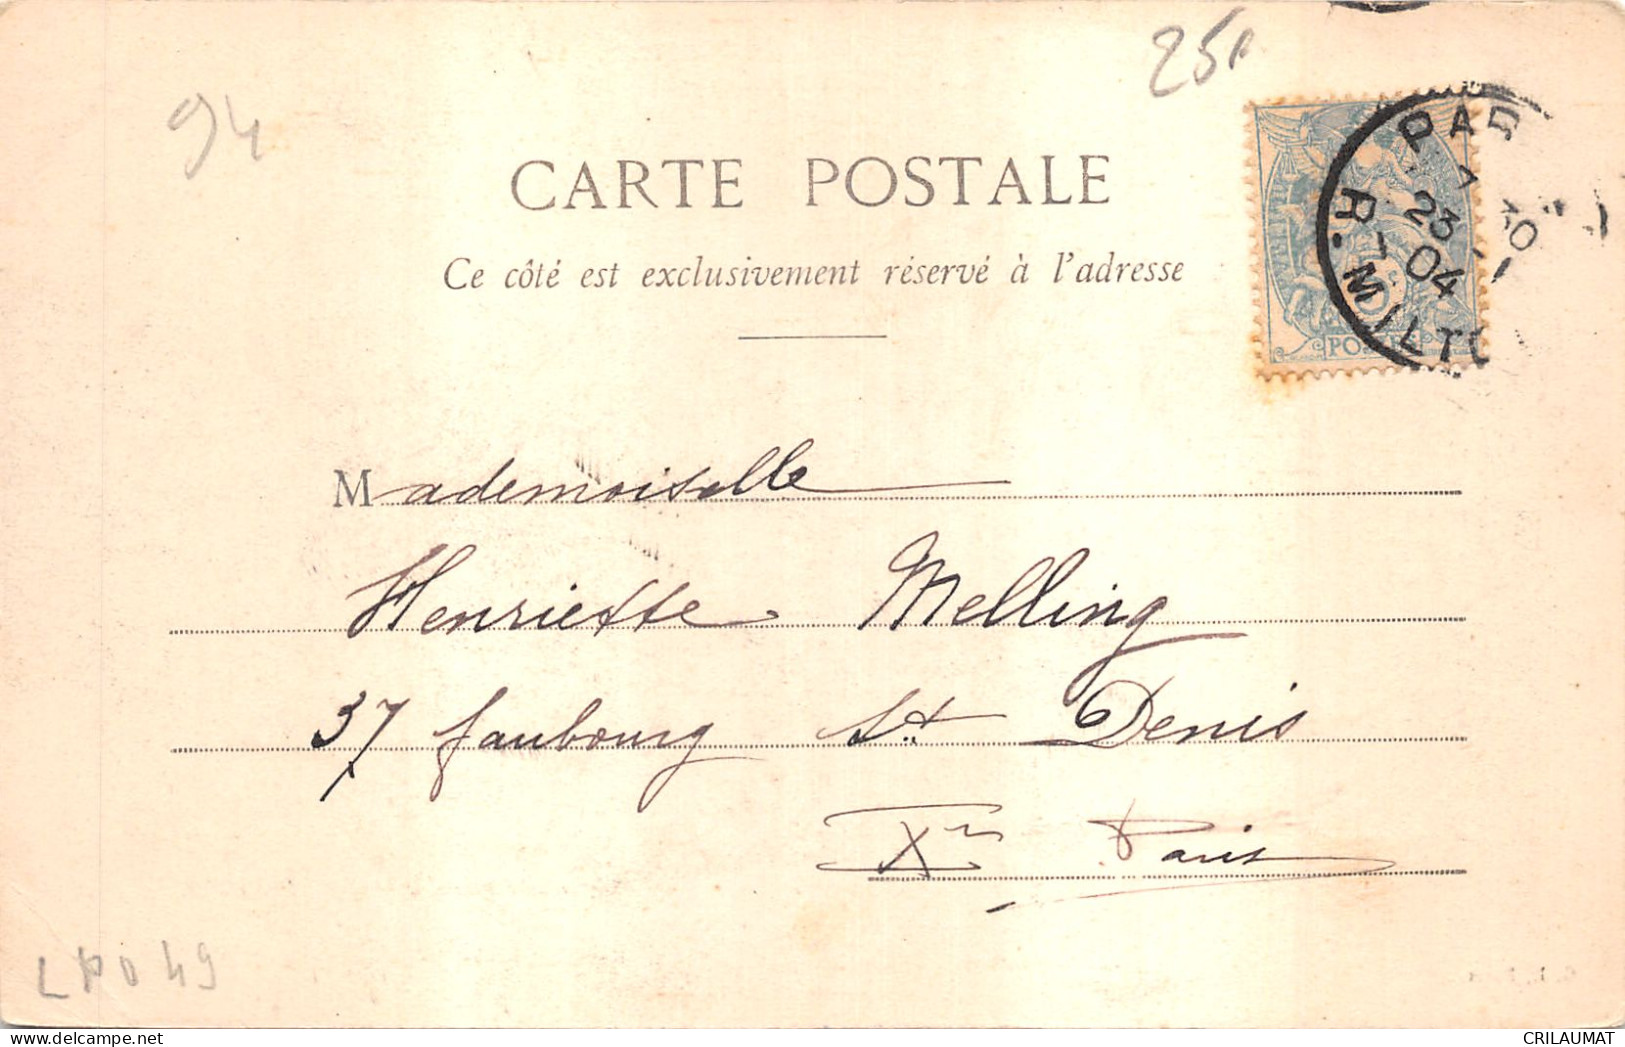 94
25
CARTE POSTALE
Ce côté est exclusivement réservé à l'adresse
PAR
23
04
R. MILTO
POSTES
Mademoiselle
Henriette Melling
37 faubourg St Denis
Xe Paris
LPO 49
CRILAUMAT